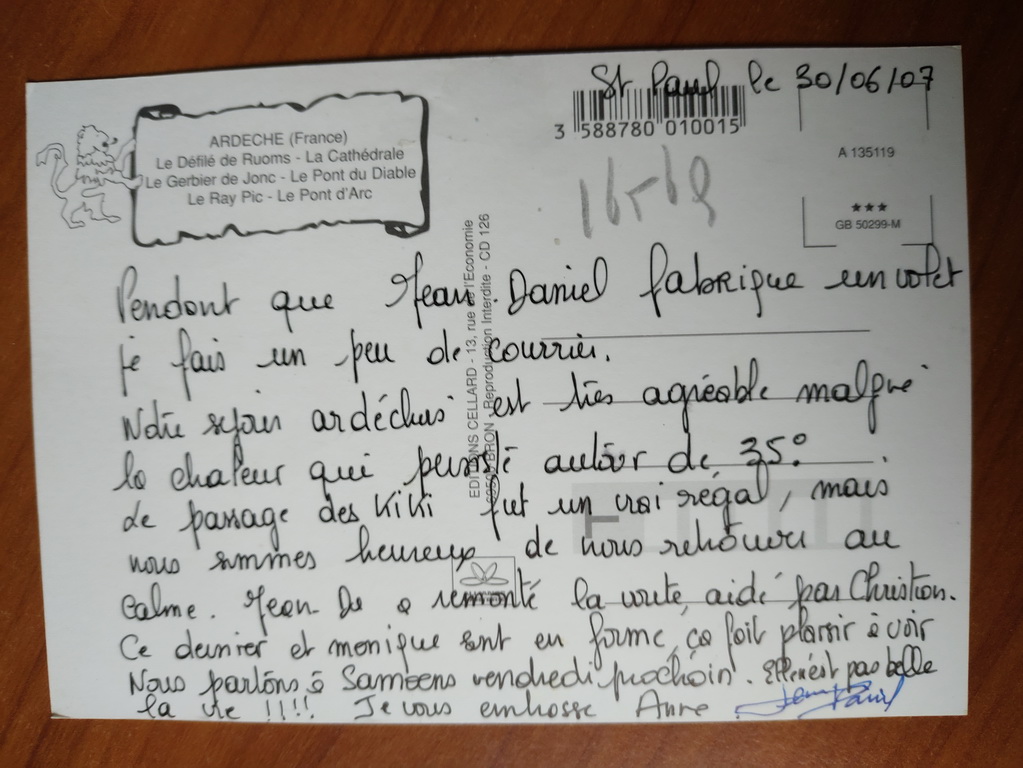 St Paul le 30/06/07
3 588780 010015
ARDECHE (France)
Le Défilé de Ruoms - La Cathédrale
Le Gerbier de Jonc - Le Pont du Diable
Le Ray Pic - Le Pont d'Arc
A 135119
★★★
GB 50299-M
EDITIONS CELLARD - 13, rue de l'Economie
69500 BRON Reproduction Interdite - CD 126
Pendant que Jean.Daniel fabrique un volet
je fais un peu de courrier.
Notre séjour ardéchois est très agréable malgré
la chaleur qui persiste autour de 35°.
Le passage des KiKi fut un vrai régal, mais
nous sommes heureux de nous retrouver au
calme. Jean-Da a remonté la voute, aidé par Christian.
Ce dernier et monique sont en forme, ça fait plaisir à voir
Nous partons à Samoens vendredi prochain. Elle n'est pas belle
la vie !!!! Je vous embrasse Anne